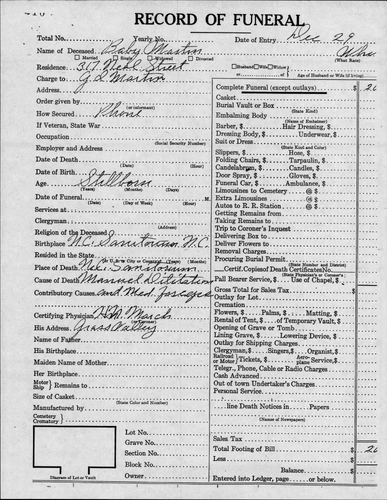 RECORD OF FUNERAL
Total No. Yearly No. Date of Entry Dec 29
Name of Deceased Baby Martin
Married Single Widowed Divorced (What Race)
Residence 317 Neal Street
Husband Wife Widow or Age of Husband or Wife (if living)
Charge to G. L. Martin
Address
Order given by
(or informant)
How Secured Phone
If Veteran, State War
Occupation
(Social Security Number)
Employer and Address
Date of Death
Date of Birth
Age Stillborn
(Years) (Months) (Days)
Date of Funeral
(Date) (Day of Week) (Hour)
Services at
Clergyman
Religion of the Deceased
Birthplace N.C. Sanitorium N.C.
Resided in the State
Place of Death N.C. Sanitorium
Cause of Death Manual Dilitation
Contributory Causes and Med. forceps
Certifying Physician H.M. March
His Address Grass Valley
Name of Father
His Birthplace
Maiden Name of Mother
Her Birthplace
Motor Ship Remains to
Size of Casket
(State Color and Number)
Manufactured by
Cemetery Crematory
Lot No.
Grave No.
Section No.
Block No.
Owner
Diagram of Lot or Vault
Complete Funeral (except outlays) $ 20
Casket
Burial Vault or Box
(State Kind)
Embalming Body
(Name of Embalmer)
Barber, $ Hair Dressing, $
Dressing Body, $ Underwear, $
Suit or Dress
(State Kind and Color)
Slippers, $ Hose, $
Folding Chairs, $ Tarpaulin, $
Candelabrum, $ Candles, $
Door Spray, $ Gloves, $
Funeral Car, $ Ambulance, $
Limousines to Cemetery @ $
Extra Limousines @ $
Autos to R. R. Station @ $
Getting Remains from
Taking Remains to
Trip to Coroner's Inquest
Delivering Box to
Deliver Flowers to
Removal Charges
Procuring Burial Permit
Certif. Copies of Death Certificates No.
(State Physician's or Coroner's)
Pall Bearer Service, $ Use of Chapel, $
Gross Total for Sales Tax $
Outlay for Lot
Cremation
Flowers, $ Palms, $ Matting, $
Rental of Tent, $ of Temporary Vault, $
Opening of Grave or Tomb
Lining Grave, $ Lowering Device, $
Outlay for Shipping Charges
Clergyman, $ Singers, $ Organist, $
Railroad Motor Tickets, $ Aero Service, $
Telegr., Phone, Cable or Radio Charges
Cash Advanced
Out of town Undertaker's Charges
Personal Service
line Death Notices in Papers
(Names of Newspapers)
Sales Tax
Total Footing of Bill $ 20
Less
Balance
Entered into Ledger, page or below.